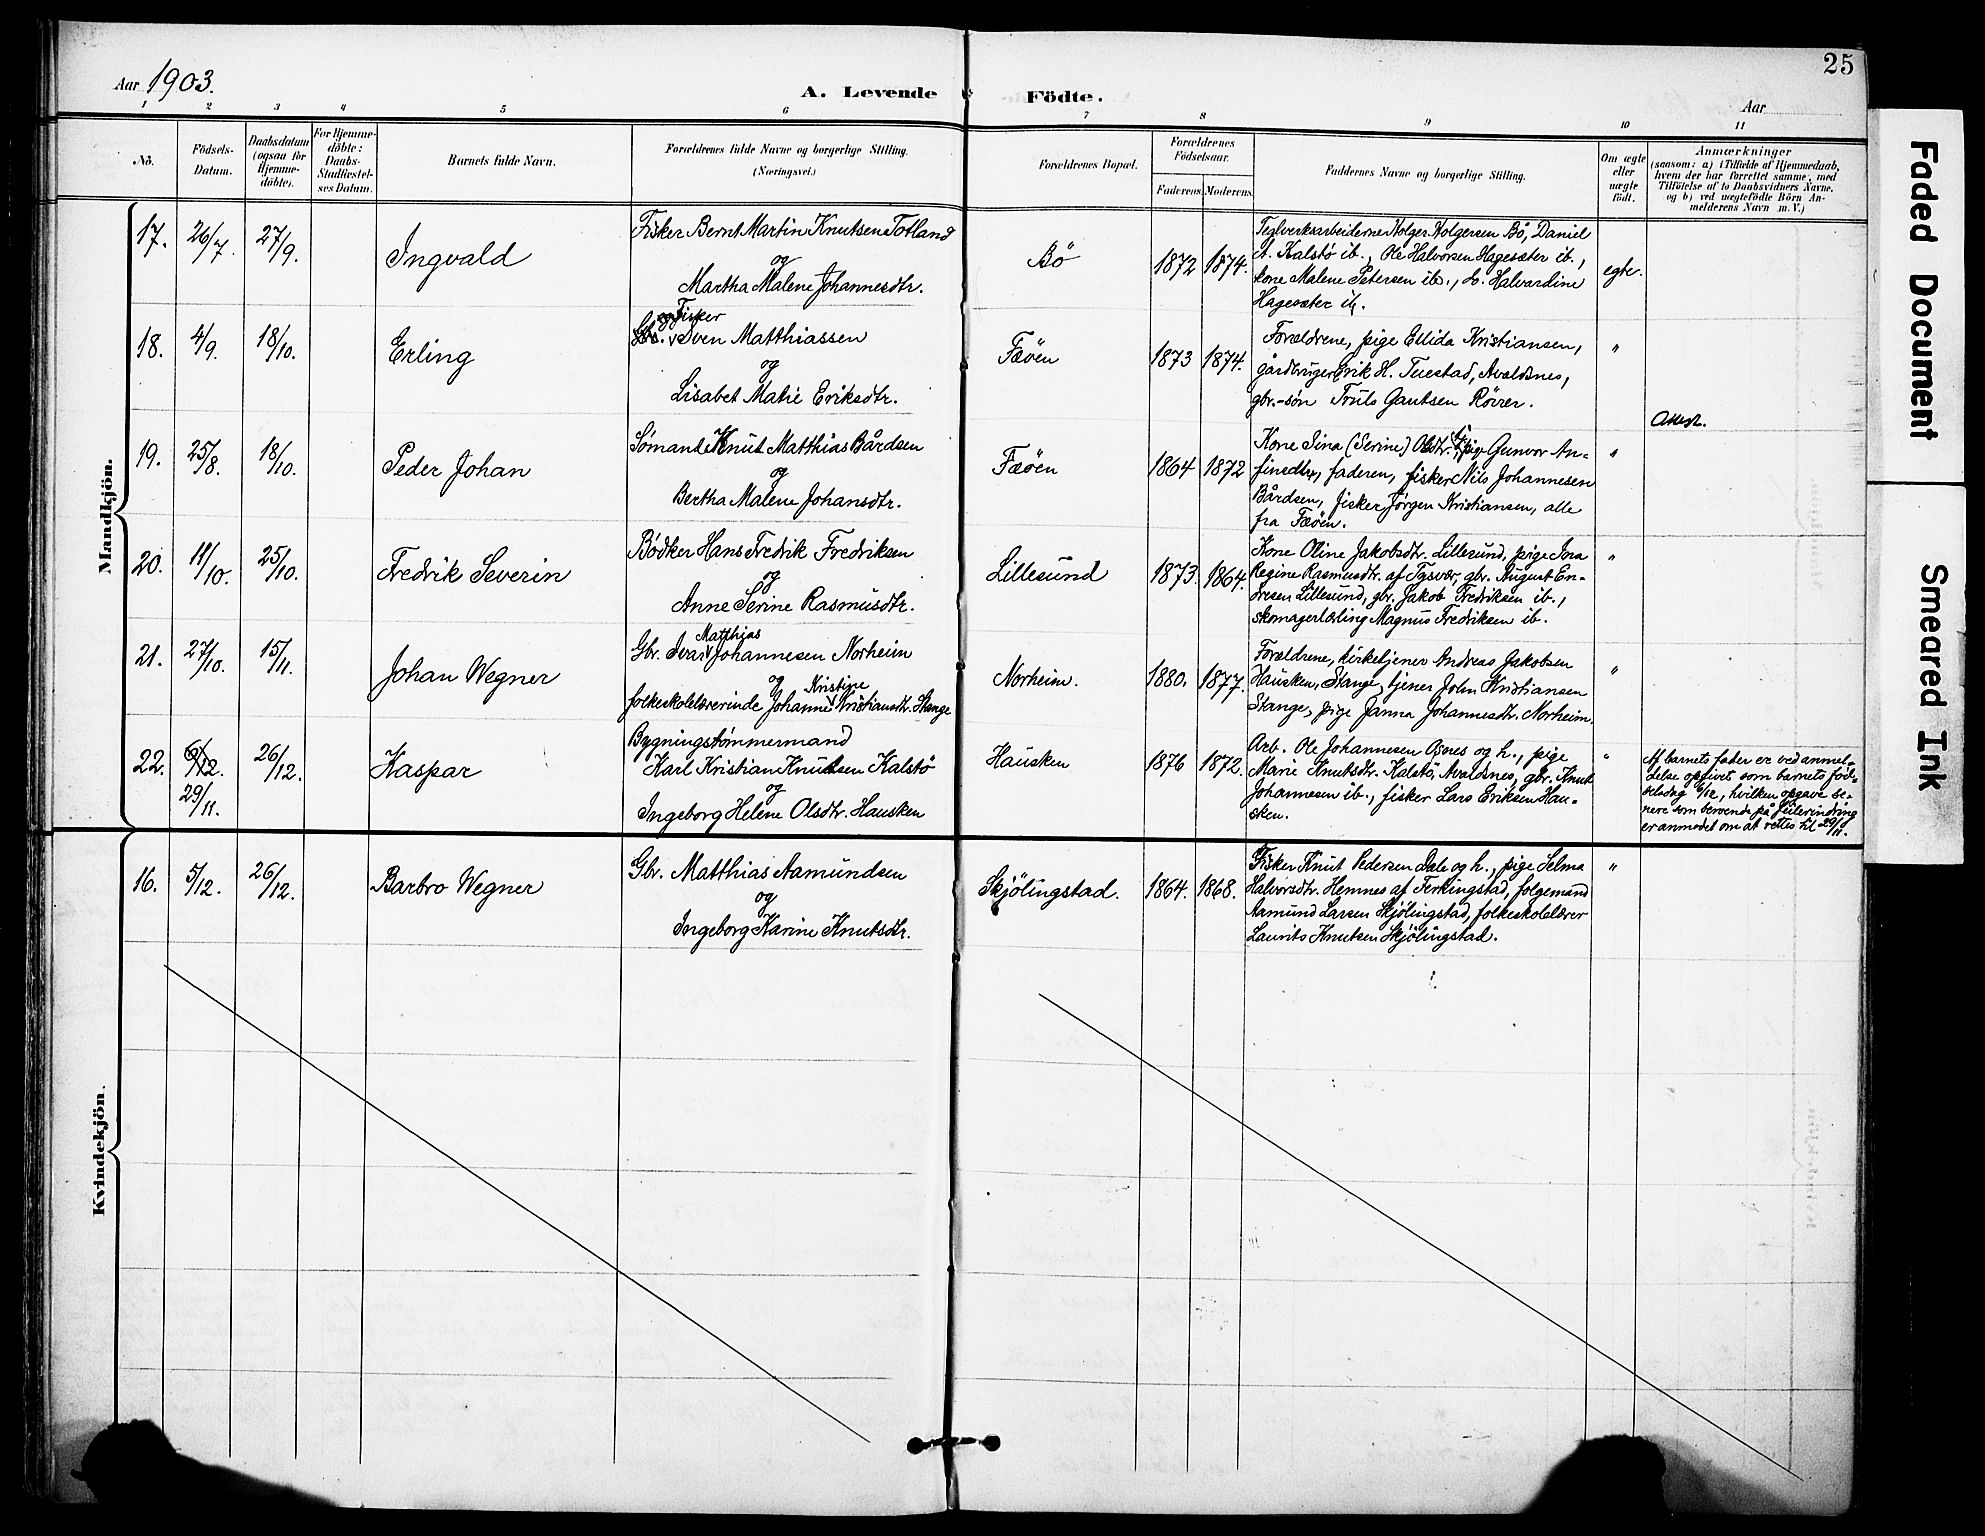 25
Aar 1903.
A. Levende Födte.
Aar
1 2 3 4 5 6 7 8 9 10 11
No.
Födsels-
Datum.
Daabsdatum
(ogsaa for
Hjemme-
döbte).
For Hjemme-
döbte:
Daabs-
Stadfæstel-
ses Datum.
Barnets fulde Navn.
Forældrenes fulde Navne og borgerlige Stilling.
(Næringsvei.)
Forældrenes Bopæl.
Forældrenes
Födselsaar.
Faderens. Moderens.
Faddernes Navne og borgerlige Stilling.
Om ægte
eller
uægte
födt.
Anmærkninger
(saasom: a) i Tilfælde af Hjemmedaab,
hvem der har forrettet samme, med
Tilföielse af to Daabsvidners Navne.
og b) ved uægtefödte Börn An-
melderens Navn m. V.)
Mandkjön.
17. 26/7. 27/9.
Ingvald
Fisker Bernt Martin Knutsen Totland
og
Martha Malene Johannesdtr.
Bö
1872 1874.
Teglverksarbeiderne Holger Holgersen Bö, Daniel
A. Kalstö ib., Ole Halvorsen Hagesæter ib.,
kone Malene Petersen ib., do. Halvardine
Hagesæter ib.
egte.
18. 4/9. 18/10.
Erling
og Fisker
Gbr. Sven Matthiassen
og
Lisabet Matie Eriksdtr.
Fæöen
1873 1874.
Forældrene, pige Ellida Kristiansen,
gårdbruger Erik H. Tuestad, Avaldsnes,
gbr.-sön Truls Gautsen Rövær.
"
Attest.
19. 25/8. 18/10.
Peder Johan
Sömand Knut Matthias Bårdsen
og
Bertha Malene Johansdtr.
Fæöen
1864 1872
Kone Sina (Serine) Olsdtr., pige Gunvor An-
finsdtr., faderen, fisker Nils Johannesen
Bårdsen, fisker Jörgen Kristiansen, alle
fra Fæöen.
"
20. 11/10. 25/10.
Fredrik Severin
Bödker Hans Fredrik Fredriksen
og
Anne Serine Rasmusdtr.
Lillesund
1873. 1864.
Kone Oline Jakobsdtr. Lillesund, pige Ina
Regine Rasmusdtr. af Tysvær, gbr. August En-
dresen Lillesund, gbr. Jakob Fredriksen ib.,
skomagerlærling Magnus Fredriksen ib.
"
21. 27/10. 15/11.
Johan Wegner
Matthias
Gbr. Ivar Johannesen Norheim
og Kristine
folkeskolelærerinde Johanne Kristiansdtr. Stange
Norheim.
1880. 1877.
Forældrene, kirketjener Andreas Jakobsen
Hausken, Stange, tjener John Kristiansen
Stange, pige Janna Johannesdtr. Norheim.
"
22. 6/12. 26/12.
29/11.
Kaspar
Bygningstömmermand
Karl Kristian Knutsen Kalstö
og
Ingeborg Helene Olsdtr. Hausken
Hausken
1876 1872.
Arb. Ole Johannesen Osnes og h., pige
Marie Knutsdtr. Kalstö, Avaldsnes, gbr. Knut
Johannesen ib., fisker Lars Eriksen Hau-
sken.
"
Af barnets fader er ved anmel-
delse opgivet som barnets föd-
selsdag 6/12, hvilken opgave se-
nere som beroende på feilerindring
er anmodet om at rettes til 29/11.
Kvindekjön.
16. 5/12. 26/12.
Barbro Wegner
Gbr. Matthias Aamundsen
og
Ingeborg Karine Knutsdtr.
Skjölingstad.
1864. 1868.
Fisker Knut Pedersen Dale og h., pige Selma
Halvorsdtr. Hemnes af Ferkingstad, folgemand
Aamund Larsen Skjölingstad, folkeskolelærer
Laurits Knutsen Skjölingstad.
"
Faded Document
Smeared Ink